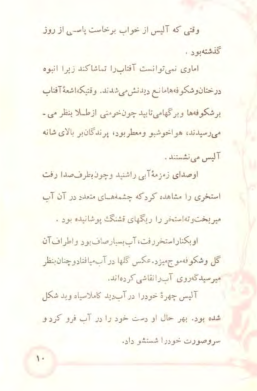 وقتی که آلیس از خواب برخاست پاسی از روز
گذشته بود .
اما وی نمی توانست آفتاب را تماشا کند زیرا انبوه
درختان و شکوفه ها مانع دیدنش می شدند. وقتیکه اشعهٔ آفتاب
بر شکوفه ها و برگها می تابید چون خرمنی از طلا بنظر می -
می رسیدند، هوا خوشبو و معطر بود، پرندگان بر بالای شانه
آلیس می نشستند .
او صدای زمزمهٔ آبی را شنید و چون بطرف صدا رفت
استخری را مشاهده کرد که چشمه های متعدد در آن آب
میریخت و ته استخر را ریگهای قشنگ پوشانیده بود .
او بکنار استخر رفت، آب بسیار صاف بود و اطراف آن
گل و شکوفه موج میزد. عکس گلها در آب میافتاد و چنان بنظر
میرسید که روی آب را نقاشی کرده اند.
آلیس چهرهٔ خود را در آب دید کاملا سیاه و بد شکل
شده بود. بهر حال او دست خود را در آب فرو کرد و
سر و صورت خود را شستشو داد.
۱۰